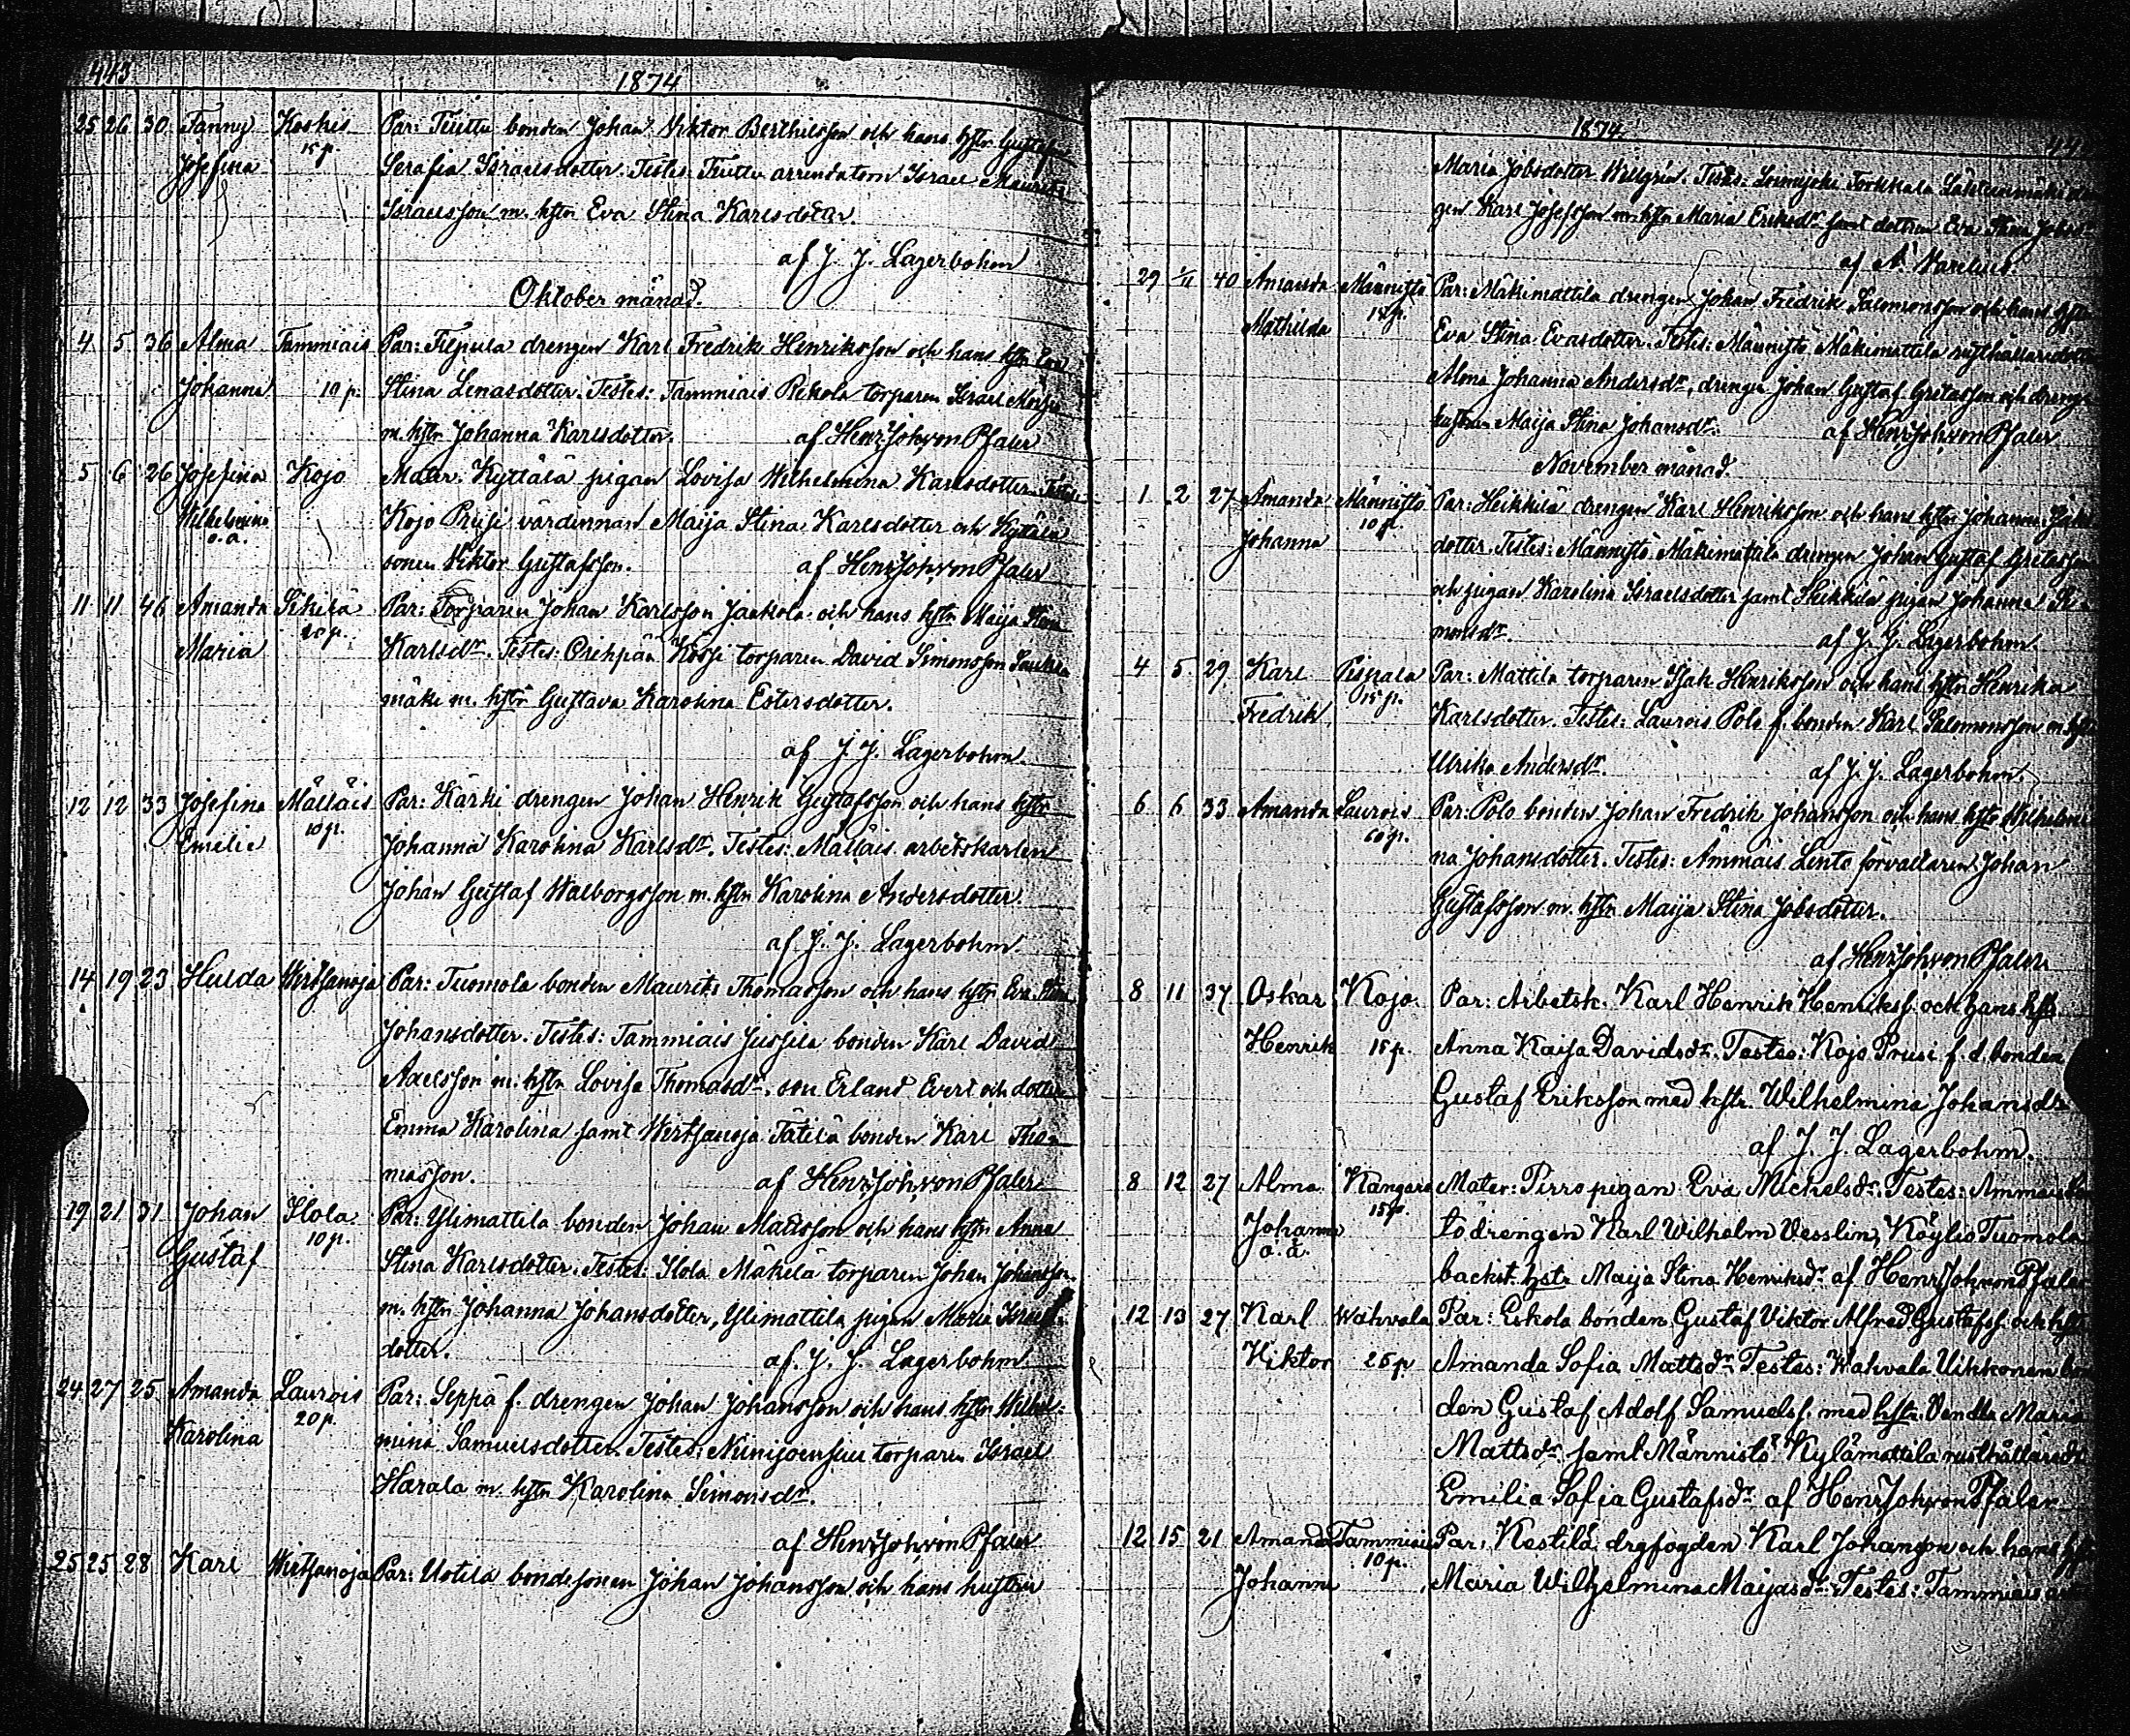 443
1874
25 26 30 Fanny Koskis Par: Tuittu bonden Johan Viktor Berthilsson och hans hstr Gustafva
Josefina 15 p. Serafia Israelsdotter. Testes: Tuittu arrendatorn Israel Maurits
Israelsson m. hstr Eva Stina Karlsdotter.
af J. J. Lagerbohm
Oktober månad.
4 5 36 Alma Tammiais Par: Filpula drengen Karl Fredrik Henriksson och hans hstr Eva
Johanna 10 p. Stina Lenasdotter. Testes: Tammiais Pekola torparen Israel
m. hstr Johanna Karlsdotter. af Henr. Joh. von Pfaler
5 6 26 Josefina Kojo Mater: Kyttälä pigan Lovisa Wilhelmina Karlsdotter. Testes:
Wilhelmina Kojo Prusi värdinnan Maija Stina Karlsdotter och Kyttälä
o. ä. sonen Viktor Gustafsson. af Henr. Joh. von Pfaler
11 11 46 Amanda Sikilä Par: Torparen Johan Karlsson Jaakola och hans hstr Maija Stina
20 p.
Maria Karlsdr. Testes: Orihpää Kössi torparen David Simonsson
mäki m. hstr Gustava Karolina Estersdotter.
af J. J. Lagerbohm.
12 12 33 Josefina Mälläis Par: Kärki drengen Johan Henrik Gustafsson och hans hstr
10 p.
Emelie Johanna Karolina Karlsdr. Testes: Mälläis arbetskarlen
Johan Gustaf Walborgsson m. hstr Karolina Andersdotter.
af J. J. Lagerbohm.
14 19 23 Hulda Wirtsanoja Par: Tuomola bonden Maurits Thomasson och hans hstr Eva Stina
Johansdotter. Testes: Tammiais Jussila bonden Karl David
Axelsson m. hstr Lovisa Thomasdr, son Erland Evert och dotter
Emma Karolina samt Wirtsanoja Tätilä bonden Karl Tho-
masson. af Henr. Joh. von Pfaler
19 21 31 Johan Ilola Par: Ylimattila bonden Johan Mattsson och hans hstr Anna
10 p.
Gustaf Stina Karlsdotter. Testes: Ilola Mäkilä torparen Johan Johansson
m. hstr Johanna Johansdotter, Ylimattila pigan Maria Israels-
dotter. af J. J. Lagerbohm.
24 27 25 Amanda Laurois Par: Seppä f. drengen Johan Johansson och hans hstr Wilhel-
20 p.
Karolina mina Samuelsdotter. Testes: Niinijoensuu torparen Israel
Harala m. hstr Karolina Simonsdr.
af Henr. Joh. von Pfaler
25 25 28 Karl Wirtsanoja Par: Uotila bondesonen Johan Johansson och hans hustru
1874
Maria Jobsdotter Willgrén. Testes: Loimijoki Torkkala
gen Karl Josefsson m. hstr Maria Eriksdr samt dottren Eva Stina Jobsdr
af A. Varelius.
29 1/11 40 Amanda Männistö Par: Mäkimattila drengen Johan Fredrik Salomonsson och hans hstr
Mathilda Eva Stina Evasdotter. Testes: Männistö Mäkimattila rusthållaredotter
Alma Johanna Andersdr, drengen Johan Gustaf Gretasson och drenge
hustrun Maija Stina Johansdr. af Henr. Joh. von Pfaler
November månad.
1 2 27 Amanda Männistö Par: Heikkilä drengen Karl Henriksson och hans hstr Johanna
10 p.
Johanna dotter. Testes: Männistö Mäkimattila drengen Johan Gustaf Gretasson
och pigan Karolina Israelsdotter samt Heikkilä pigan Johanna Si-
monsdr. af J. J. Lagerbohm.
4 5 29 Karl Pispala Par: Mattila torparen Isak Henriksson och hans hstr Henrika
15 p.
Fredrik Karlsdotter. Testes: Laurois Polo f. bonden Karl Salomonsson m. hstr
Ulrika Andersdr. af J. J. Lagerbohm.
6 6 33 Amanda Laurois Par: Polo bonden Johan Fredrik Johansson och hans hstr Wilhelmi-
60 p.
na Johansdotter. Testes: Ammais Lento förvaltaren Johan
Gustafsson m. hstr Maija Stina Jobsdotter.
af Henr. Joh. von Pfaler
8 11 37 Oskar Kojo. Par: Arbetsk. Karl Henrik Henrikss. och hans hstr
Henrik 15 p. Anna Kaisa Davidsdr. Testes: Kojo Prusi f. d. bonden
Gustaf Eriksson med hstr. Wilhelmina Johansdr
af J. J. Lagerbohm.
8 12 27 Alma Kangare Mater: Pirro pigan Eva Michelsdr. Testes: Ammais
15 p
Johanna to drengen Karl Wilhelm Vesslin, Köyliö Tuomola
o. ä. backst. hstr Maija Stina Henriksdr. af Henr. Joh. von Pfaler
12 13 27 Karl Wahvala Par: Eskola bonden Gustaf Viktor Alfred Gustafss. och hstr
Viktor 25 p Amanda Sofia Mattsdr. Testes: Wahvala Uikkonen bon
den Gustaf Adolf Samuelss. med hstr. Vendla Maria
Mattsdr. samt Männistö Kylämattila rusthållaredr
Emilia Sofia Gustafsdr af Henr. Joh. von Pfaler
12 15 21 Amanda Tammiais Par: Kestilä drgfogden Karl Johansson och hans hstr
10 p.
Johanna Maria Wilhelmina Maijasdr. Testes: Tammiais